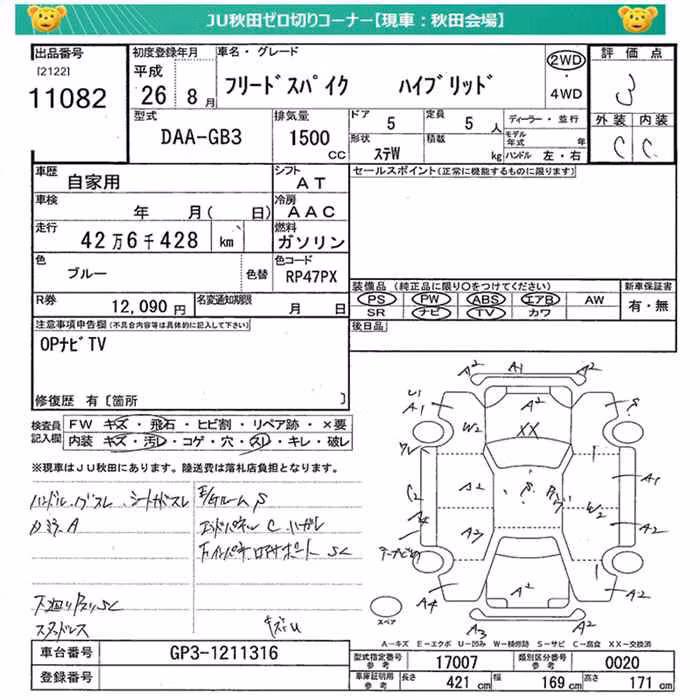 JU秋田ゼロ切りコーナー【現車：秋田会場】
出品番号
[2122]
11082
初度登録年月
平成
26 8月
車名・グレード
フリードスパイク ハイブリッド
2WD
・
4WD
評価点
3
外装 内装
C C
型式
DAA-GB3
排気量
1500
CC
ドア
5
定員
5 人
形状
ステW
積載
kg
ディーラー・並行
モデル年式 年
ハンドル 左・右
車歴
自家用
シフト
AT
車検
年 月( 日)
冷房
AAC
走行
42万6千428 km
燃料
ガソリン
色
ブルー
色替
色コード
RP47PX
R券
12,090円
名変通知期限
月 日
セールスポイント(正常に機能するものに限ります)
装備品 (純正品に限り○をつけてください)
PS PW ABS エアB AW
SR ナビ TV カワ
新車保証書
有・無
後日品
注意事項申告欄(不具合内容等は具体的に記入して下さい)
OPナビTV
修復歴 有〔箇所 〕
検査員
記入欄
FW キズ・飛石・ヒビ割・リペア跡・×要
内装 キズ・汚レ・コゲ・穴・スリ・キレ・破レ
※現車はJU秋田にあります。陸送費は落札店負担となります。
ハンドル
ルーム S
エンドパネル C ハガレ
サポート SC
下廻り
スタッドレス
キズU
A2 A1 A2
U1
A1
A2
S
W2
XX
A2
S
A1
C2
A4
W2
A2
A2
A4
A2
A2
A3
A2
スペア
A－キズ E－エクボ U－凹み W－補修跡 S－サビ C－腐食 XX－交換済
車台番号
GP3-1211316
登録番号
型式指定番号
参考
17007
類別区分番号
参考
0020
車庫証明用
参考
長さ 421 cm 幅 169 cm 高さ 171 cm